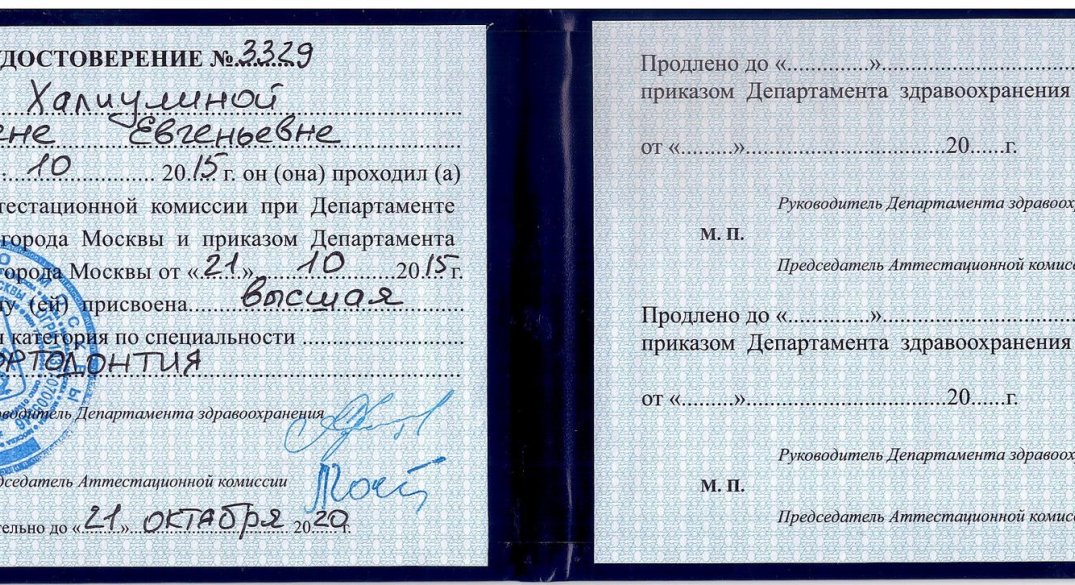 УДОСТОВЕРЕНИЕ № 3329
Халиулиной
ене Евгеньевне
10 2015 г. он (она) проходил (а)
тестационной комиссии при Департаменте
города Москвы и приказом Департамента
города Москвы от «21» 10 2015 г.
у (ей) присвоена высшая
категория по специальности
ОРТОДОНТИЯ
ководитель Департамента здравоохранения
едседатель Аттестационной комиссии
тельно до «21» ОКТЯбРЯ 2020 г.
Продлено до «..............»
приказом Департамента здравоохранения
от «.........»..................................20......г.
Руководитель Департамента здравоох
М. П.
Председатель Аттестационной комисс
Продлено до «..............»
приказом Департамента здравоохранения
от «.........»..................................20......г.
Руководитель Департамента здравоох
М. П.
Председатель Аттестационной комисс